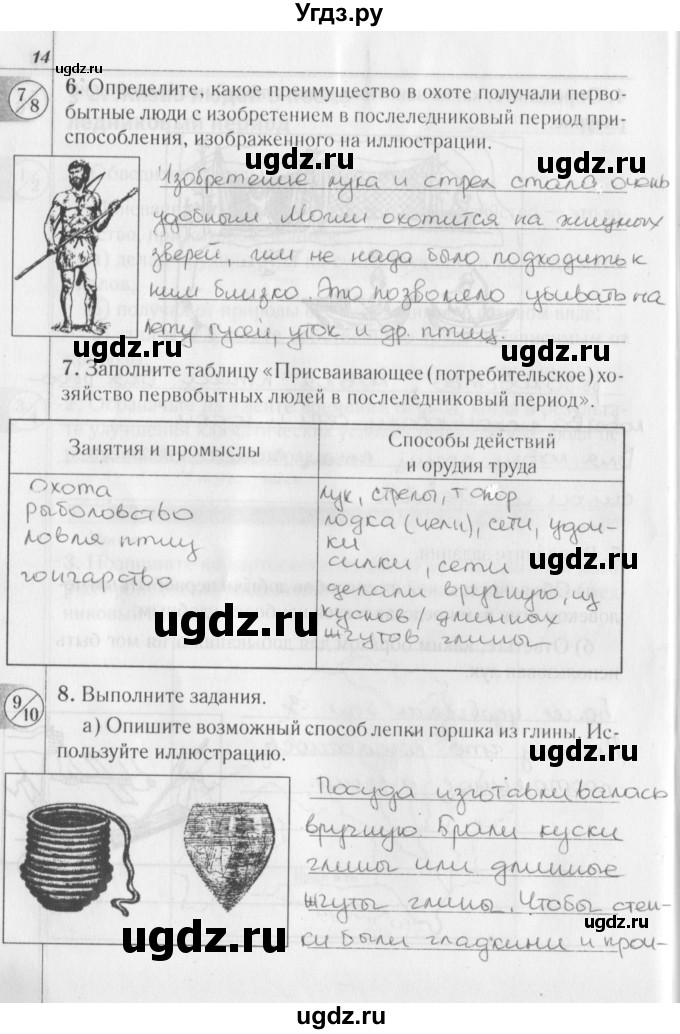 Угдз.ру
14
ugdz.ru
7/8
6. Определите, какое преимущество в охоте получали перво-
бытные люди с изобретением в послеледниковый период при-
способления, изображенного на иллюстрации.
ugdz.ru
ugdz.ru
Изобретение лука и стрел стала очень
удобным Могли охотится на хищных
зверей, им не нада было подходить к
ugdz.ru
ним близко Это позволело убивать на
лету гусей, уток и др. птиц.
ugdz.ru
7. Заполните таблицу «Присваивающее (потребительское) хо-
зяйство первобытных людей в послеледниковый период».
ugdz.ru
Занятия и промыслы
Способы действий
и орудия труда
Охота
рыболовство
ловля птиц
гончарство
лук, стрелы, топор
лодка (челн), сети, удоч-
ки
силки, сети
делали вручную, из
кусков / длинных
жгутов глины
ugdz.ru
ugdz.ru
ugdz.ru
9/10
8. Выполните задания.
ugdz.ru
а) Опишите возможный способ лепки горшка из глины. Ис-
пользуйте иллюстрацию.
ugdz.ru
Посуда изготавливалась
вручную. Брали куски
глины или длинные
жгуты глины. Чтобы стен-
ки были гладкими и проч-
ugdz.ru
ugdz.ru
ugdz.ru
ugdz.ru